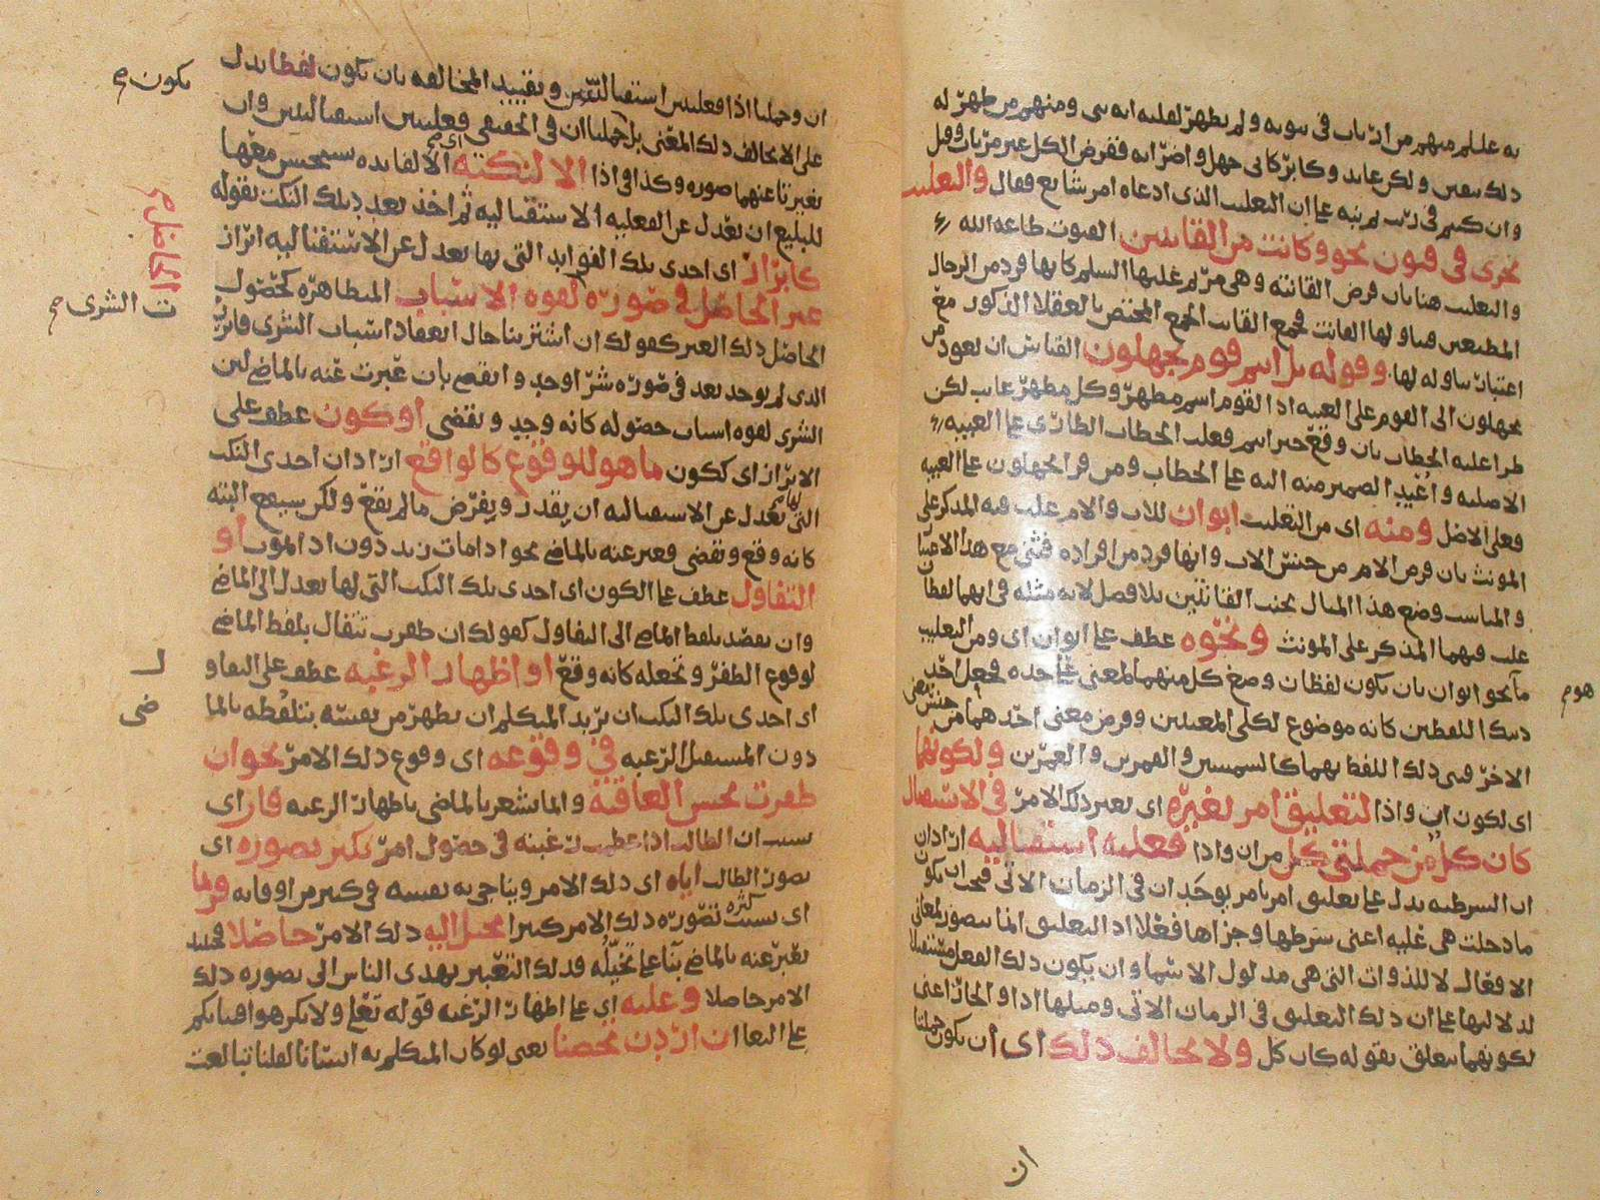 به علم منهم من ارتاب في نبوته ولم يظهر لغلبه انه نبي ومنهم من ظهر له
ذلك يقين ولكن عاند وكابر كابي جهل واضرابه ففرض الكل غير مرتاب وقيل
وان كنتم في ريب ثم نبه على ان التغليب الذي ادعاه امر شايع فقال والتغليب
يجري في فنون نحو وكانت من القانتين القنوت طاعة الله
والتغليب هنا بان فرض القانتة وهي مريم عليها السلم كانها فرد من الرجال
المطيعين فتناولها القانت فجمع القانت الجمع المختص بالعقلا الذكور مع
اعتبار تناوله لها. وقوله بل انتم قوم تجهلون القياس ان تعود من
تجهلون الى القوم على الغيبه اذ القوم اسم مظهر وكل مظهر غايب لكن
طرا عليه الخطاب بان وقع خبر انتم فغلب الخطاب الطاري على الغيبه
الاصليه واعيد الضمير منه اليه على الخطاب ومن قرا يجهلون على الغيبه
فعلى الاصل ومنه اى من التغليب ابوان للاب والام غلب فيه المذكر على
المونث بان فرض الام من جنس الاب وانها فرد من افراده فثنى مع هذا
والمناسب وضع هذا المثال بجنب القانتين بلا فصل لانه مثله في انهما لفظان
غلب فيهما المذكر على المونث ونحوه عطف على ابوان اى ومن التغليب
ما نحو ابوان بان يكون لفظان وضع كل منهما لمعنى على حده فجعل احد
ذينك اللفظين كانه موضوع لكلى المعنيين وفرض معنى احدهما من جنس معنى
الاخر فثنى ذلك اللفظ بهما كالشمسين والقمرين والعمرين ولكونهما
اى لكون ان واذا لتعليق امر بغيره اى بغير ذلك الامر في الاستقبال
كان كل من جملتي كل من ان واذا فعليه استقباليه اراد ان
ان الشرطيه يدل على تعليق امر بامر يوجد ان في الزمان الاتي فيجب ان يكون
ما دخلت هي عليه اعنى شرطها وجزاها فعلا اذ التعليق انما يتصور لمعاني
الافعال لا للذوات التي هي مدلول الاسما وان يكون ذلك الفعل مستقبلا
لدلالتها على ان ذلك التعليق في الزمان الاتي ومثلها اذا والجار اعنى
لكونهما يتعلق بقوله كان كل ولا يخالف ذلك اى ان يكون جملتا
هوم
ان
ان وجملتا اذا فعليتين استقباليتين وتقييد المخالفه بان يكون لفظا يدل
على الا يخالف ذلك المعنى بل جملتا ان في الحقيقى فعليتين استقباليتين وان
تغيرتا عنهما صوره وكذا في اذا الا لنكته الا لفايده سيحسن معها
للبليغ ان يعدل عن الفعليه الاستقباليه ثم اخذ يعدد تلك النكت بقوله
كابراز اى احدى تلك الفوايد التي بها يعدل عن الاستقباليه ابراز
غير الحاصل في صوره لقوه الاسباب المتظاهره كحصول
الحاصل ذلك الغير كقولك ان اشترينا حال انعقاد اسباب الشرى فابرز
الذي لم يوجد بعد في صوره شرا وجد وانقضى بان عبرت عنه بالماضى لين
الشرى لقوه اسباب حصوله كانه وجد وتقضى او كون عطف على
الابراز اى ككون ما هو للوقوع كالواقع اراد ان احدى النكت
التي لها يعدل عن الاستقباليه ان يقدر ويفرض ما لم يقع ولكن سيقع البته
كانه وقع وتقضى فعبر عنه بالماضى نحو اذا مات زيد دون اذا الموت او
التفاول عطف على الكون اى احدى تلك النكت التي لها يعدل الى الماضى
وان يقصد بلفظ الماضى الى التفاول كقولك ان ظفرت تتفال بلفظ الماضى
لوقوع الظفر وتجعله كانه وقع او اظهار الرغبه عطف على التفاو
اى احدى تلك النكت ان يريد المتكلم ان يظهر من نفسه بتلفظه بالما
دون المستقبل الرغبه في وقوعه اى وقوع ذلك الامر نحو ان
ظفرت بحسن العاقبة وانما يشعر بالماضى باظهار الرغبه فان اى
بسبب ان الطالب اذا عظمت رغبته في حصول امر يكثر تصوره اى
تصور الطالب اياه اى ذلك الامر ويناجي به نفسه في كثير من اوقاته فربما
اى بسبب كثره تصوره ذلك الامر كثيرا يخيل اليه ذلك الامر حاصلا فحينئذ
يعبر عنه بالماضى بنا على تخيله فذلك التعبير يهدى الناس الى تصوره ذلك
الامر حاصلا وعليه اى على اظهار الرغبه قوله تعلى ولا تكرهوا فتياتكم
على البغا ان اردن تحصنا يعنى لو كان المتكلم به انسانا لقلنا بالغت
يكون
الحاصل
ت الشرى
ل
ضى